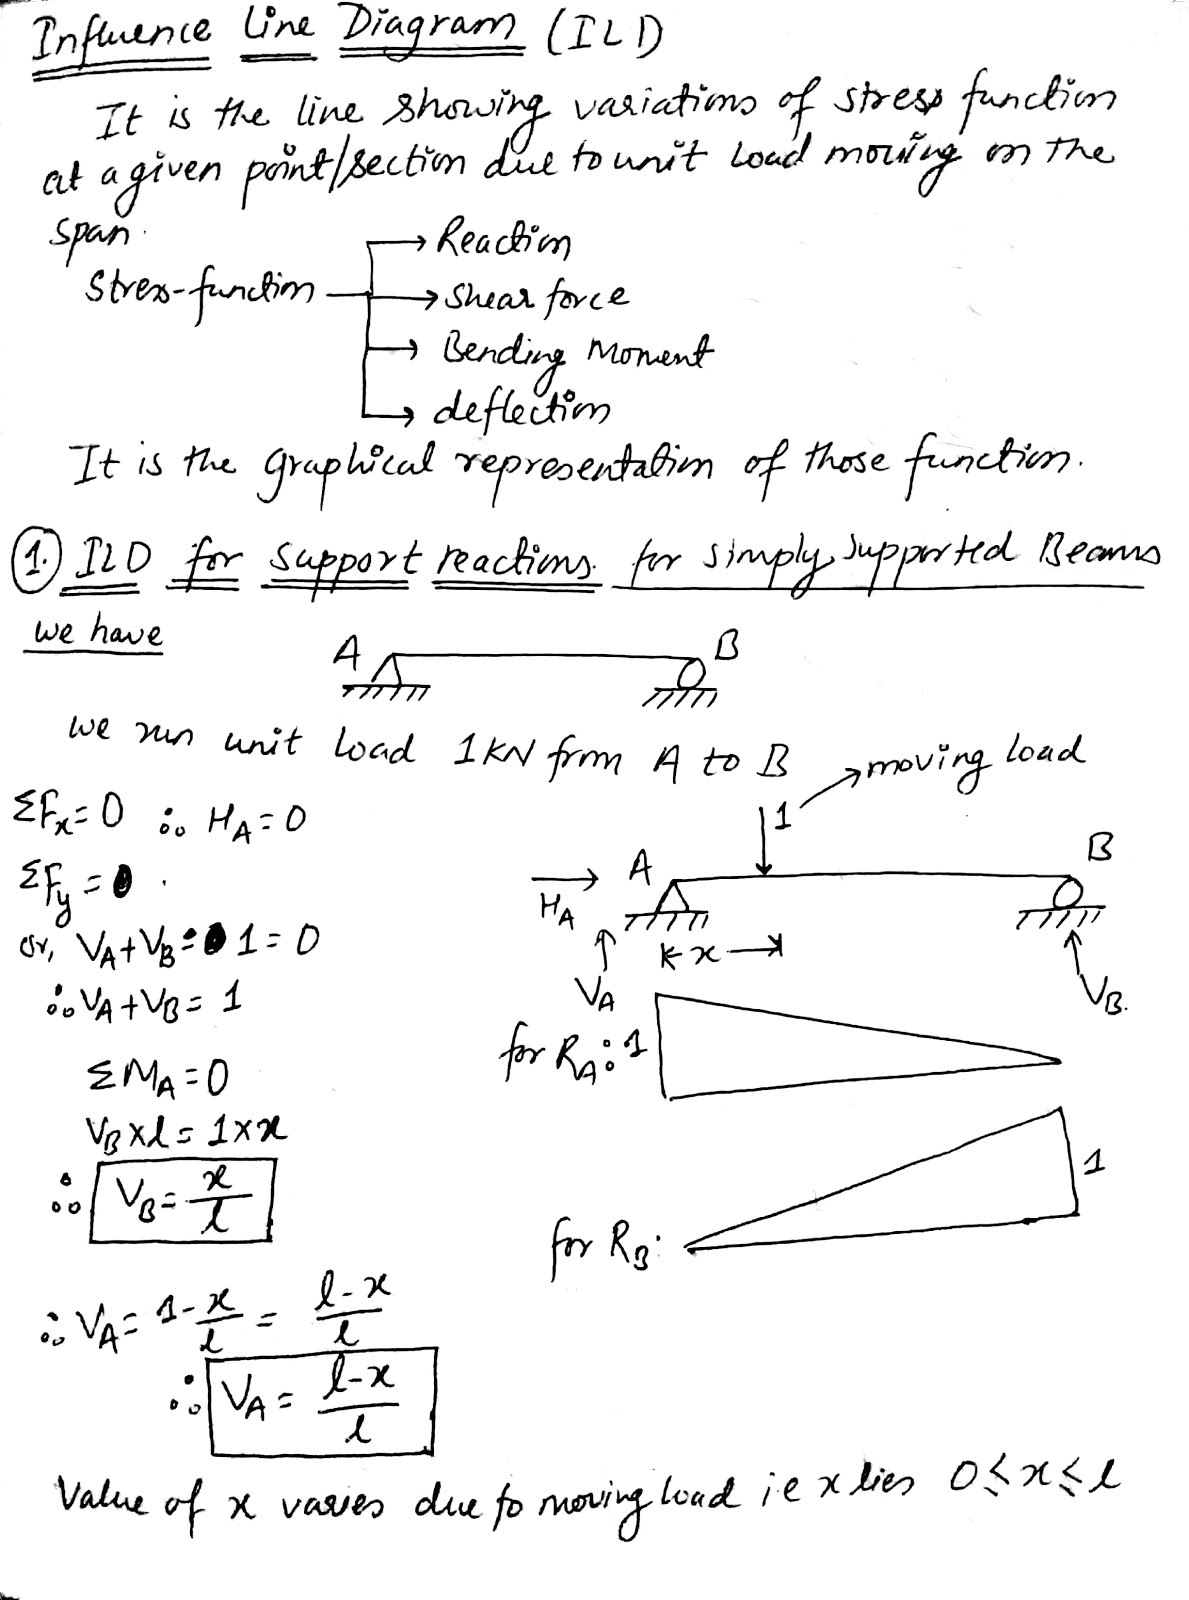 Influence Line Diagram (ILD)
It is the line showing variations of stress function
at a given point/section due to unit load moving on the
span.
Stress-function → Reaction
→ Shear force
→ Bending Moment
→ deflection
It is the graphical representation of those function.
1. ILD for support reactions for simply supported Beams
we have
A B
we run unit load 1KN from A to B
moving load
ΣFx=0 ∴ HA=0
1
ΣFy=0
A B
HA
or, VA+VB-1=0
x
∴ VA+VB=1
VA VB.
for RA: 1
ΣMA=0
VB×l=1×x
∴ VB=x/l
1
for RB:
∴ VA=1-x/l=l-x/l
∴ VA=l-x/l
Value of x varies due to moving load i.e x lies 0≤x≤l